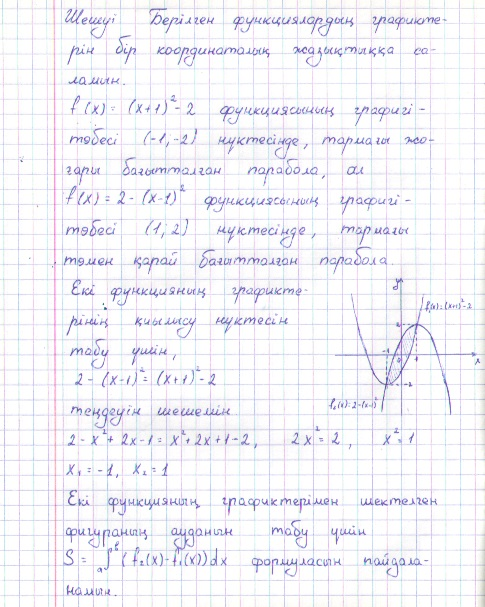 Шешуі Берілген функциялардың графикте-
рін бір координаталық жазықтыққа са-
ламын.
f(x) = (x+1)²-2 функциясының графигі -
төбесі (-1,-2) нүктесінде, тармағы жо-
ғары бағытталған парабола, ал
f(x) = 2-(x-1)² функциясының графигі -
төбесі (1;2) нүктесінде, тармағы
төмен қарай бағытталған парабола.
Екі функцияның графикте-
рінің қиылысу нүктесін
табу үшін,
2-(x-1)²=(x+1)²-2
теңдеуін шешемін
2-x²+2x-1=x²+2x+1-2, 2x²=2, x²=1
x₁=-1, x₂=1
Екі функцияның графиктерімен шектелген
фигураның ауданын табу үшін
S = ₐ∫ᵇ(f₂(x)-f₁(x))dx формуласын пайдала-
намын.
y
f₁(x)=(x+1)²-2
2
-1
0
1
x
-2
f₂(x)=2-(x-1)²